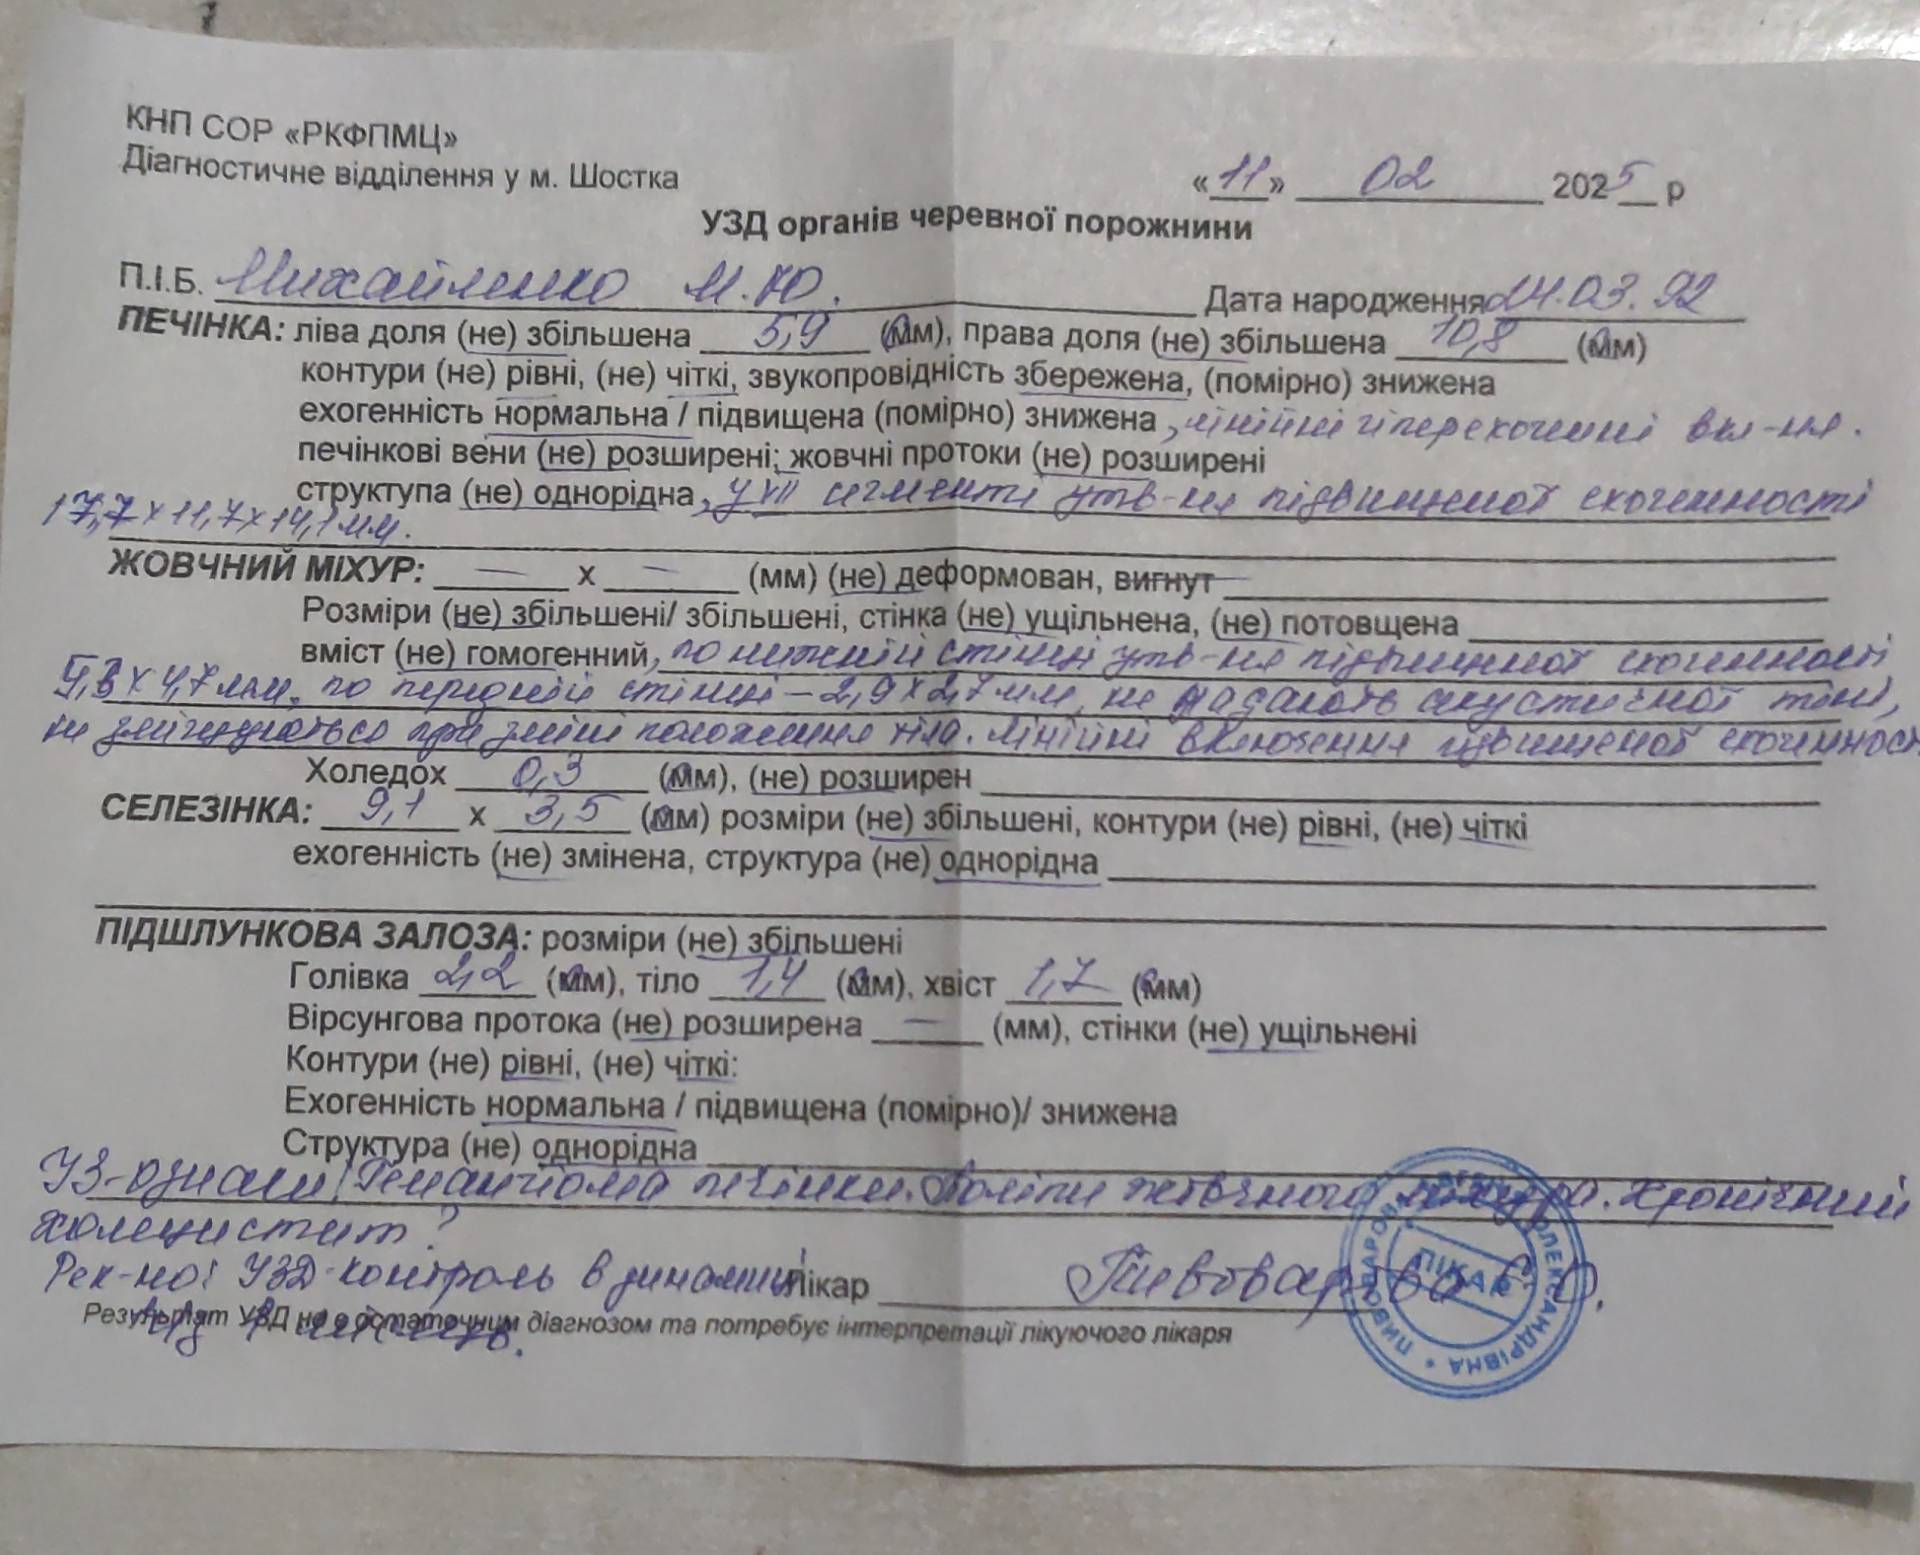 КНП СОР «РКФПМЦ»
Діагностичне відділення у м. Шостка
«11» 02 2025 р
УЗД органів черевної порожнини
П.І.Б. Михайленко М.Ю. Дата народження 24.03.92
ПЕЧІНКА: ліва доля (не) збільшена 5,9 (см), права доля (не) збільшена 10,8 (см)
контури (не) рівні, (не) чіткі, звукопровідність збережена, (помірно) знижена
ехогенність нормальна / підвищена (помірно) знижена, лінійні гіперехогенні вкл-ня.
печінкові вени (не) розширені; жовчні протоки (не) розширені
структупа (не) однорідна, у VII сегменті утв-ня підвищеної ехогенності
17,7 х 11,7 х 14,1 мм.
ЖОВЧНИЙ МІХУР: — х — (мм) (не) деформован, вигнут
Розміри (не) збільшені/ збільшені, стінка (не) ущільнена, (не) потовщена
вміст (не) гомогенний, по нижній стінці утв-ня підвищеної ехогенності
х 4,7 мм, по передній стінці – 2,9 х 2,7 мм, не дають акустичної тіні,
не зміщуються при зміні положення тіла. Лінійні включення підвищеної ехогенност
Холедох 0,3 (см), (не) розширен
СЕЛЕЗІНКА: 9,1 х 3,5 (см) розміри (не) збільшені, контури (не) рівні, (не) чіткі
ехогенність (не) змінена, структура (не) однорідна
ПІДШЛУНКОВА ЗАЛОЗА: розміри (не) збільшені
Голівка 2,2 (см), тіло 1,4 (см), хвіст 1,7 (см)
Вірсунгова протока (не) розширена — (мм), стінки (не) ущільнені
Контури (не) рівні, (не) чіткі:
Ехогенність нормальна / підвищена (помірно)/ знижена
Структура (не) однорідна
УЗ-ознаки: Гемангіома печінки. Поліпи жовчного міхура. Хронічний
холецистит?
Рек-но: УЗД-контроль в динаміці Лікар Пивоварова О.О.
Результат УЗД не є остаточним діагнозом та потребує інтерпретації лікуючого лікаря
ЛІКАР
ПИВОВАРОВА ОЛЕКСАНДРІВНА